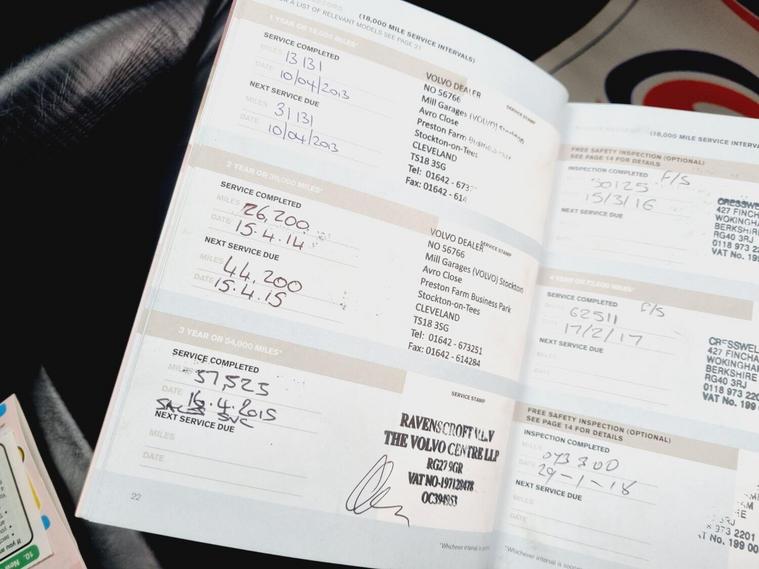 (18,000 MILE SERVICE INTERVALS)
A LIST OF RELEVANT MODELS SEE PAGE 21
1 YEAR OR 18,000 MILES*
SERVICE COMPLETED
MILES 13131
DATE 10/04/2013
NEXT SERVICE DUE
MILES 31131
DATE 10/04/2013
SERVICE STAMP
VOLVO DEALER
NO 56766
Mill Garages (VOLVO) Stockton
Avro Close
Preston Farm Business
Stockton-on-Tees
CLEVELAND
TS18 3SG
Tel: 01642 - 673
Fax: 01642 - 614
2 YEAR OR 36,000 MILES*
SERVICE COMPLETED
MILES 26,200
DATE 15.4.14
NEXT SERVICE DUE
MILES 44,200
DATE 15.4.15
SERVICE STAMP
VOLVO DEALER
NO 56766
Mill Garages (VOLVO) Stockton
Avro Close
Preston Farm Business Park
Stockton-on-Tees
CLEVELAND
TS18 3SG
Tel: 01642 - 673251
Fax: 01642 - 614284
3 YEAR OR 54,000 MILES*
SERVICE COMPLETED
MILES 37,523
DATE 16.4.2015
SVC
NEXT SERVICE DUE
MILES
DATE
SERVICE STAMP
RAVENSCROFT
THE VOLVO CENTRE LLP
RG27 9GR
VAT NO-197128478
OC394953
22
*Whichever interval is
(18,000 MILE SERVICE INTERVA
FREE SAFETY INSPECTION (OPTIONAL)
SEE PAGE 14 FOR DETAILS
INSPECTION COMPLETED F/S
30125
15/3/16
NEXT SERVICE DUE
CRESSWE
427 FINCH
WOKINGHA
BERKSHIR
RG40 3RJ
0118 973 2
VAT No. 199
4 YEAR OR 72,000 MILES*
SERVICE COMPLETED F/S
62511
17/2/17
NEXT SERVICE DUE
CRESSWEL
427 FINCHA
WOKINGHA
BERKSHIRE
RG40 3RJ
0118 973 220
VAT No. 199
FREE SAFETY INSPECTION (OPTIONAL)
SEE PAGE 14 FOR DETAILS
INSPECTION COMPLETED
MILES 073300
DATE 29-1-18
NEXT SERVICE DUE
MILES
DATE
973 2201
No. 199 00
*Whichever interval is soone
10. New